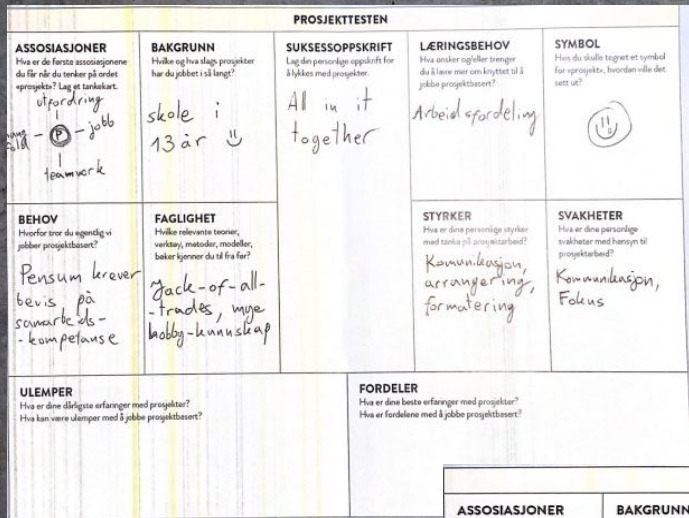 PROSJEKTTESTEN
ASSOSIASJONER
Hva er de første assosiasjonene
du får når du tenker på ordet
«prosjekt»? Lag et tankekart.
utfordring
fold - P - jobb
teamwork
BAKGRUNN
Hvilke og hva slags prosjekter
har du jobbet i så langt?
skole i
13 år
SUKSESSOPPSKRIFT
Lag din personlige oppskrift for
å lykkes med prosjekter.
All in it
together
LÆRINGSBEHOV
Hva ønsker og/eller trenger
du å lære mer om knyttet til å
jobbe prosjektbasert?
Arbeidsfordeling
SYMBOL
Hvis du skulle tegnet et symbol
for «prosjekt», hvordan ville det
sett ut?
BEHOV
Hvorfor tror du egentlig vi
jobber prosjektbasert?
Pensum krever
bevis på
samarbeids-
-kompetanse
FAGLIGHET
Hvilke relevante teorier,
verktøy, metoder, modeller,
bøker kjenner du til fra før?
Jack-of-all-
-trades, mye
hobby-kunnskap
STYRKER
Hva er dine personlige styrker
med tanke på prosjektarbeid?
Komunikasjon,
arrangering,
formatering
SVAKHETER
Hva er dine personlige
svakheter med hensyn til
prosjektarbeid?
Kommunikasjon,
Fokus
ULEMPER
Hva er dine dårligste erfaringer med prosjekter?
Hva kan være ulemper med å jobbe prosjektbasert?
FORDELER
Hva er dine beste erfaringer med prosjekter?
Hva er fordelene med å jobbe prosjektbasert?
ASSOSIASJONER
BAKGRUNN